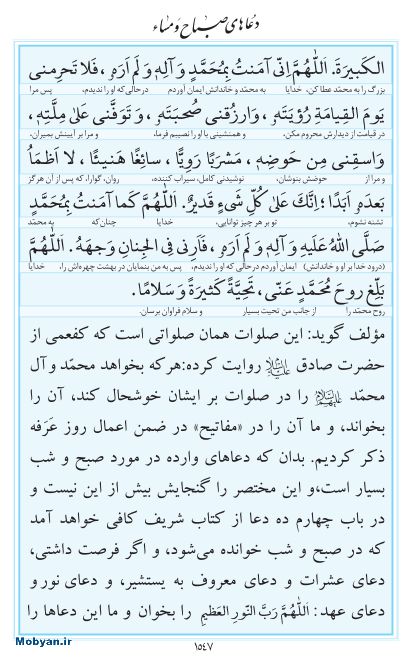 دعاهای صباح و مساء
الكَبيرَةَ. اَللّٰهُمَّ اِنّى آمَنتُ بِمُحَمَّدٍ وَ آلِهٖ وَ لَم اَرَهٗ، فَلا تَحرِمنى
بزرگ را به محمّد عطا کن، خدایا به محمّد و خاندانش ایمان آوردم درحالی که او را ندیدم، پس مرا
يَومَ القِيامَةِ رُؤيَتَهٗ، وَ ارزُقنى صُحبَتَهٗ، وَ تَوَفَّنى عَلىٰ مِلَّتِهٖ،
در قیامت از دیدارش محروم مکن، و همنشینی با او را نصیبم فرما، و مرا بر آیینش بمیران،
وَ اسقِنى مِن حَوضِهٖ، مَشرَبًا رَوِيًّا، سائِغًا هَنيئًا، لا اَظمَأُ
و مرا از حوضش بنوشان، نوشیدنی کامل، سیراب کننده، روان، گوارا، که پس از آن هرگز
بَعدَهٗ اَبَدًا ؛اِنَّكَ عَلىٰ كُلِّ شَىءٍ قَديرٌ. اَللّٰهُمَّ كَما آمَنتُ بِمُحَمَّدٍ
تشنه نشوم، تو بر هر چیز توانایی، خدایا چنان‌که به محمّد
صَلَّى اللهُ عَلَيهِ وَ آلِهٖ وَ لَم اَرَهٗ، فَاَرِنى فِى الجِنانِ وَجهَهٗ. اَللّٰهُمَّ
(درود خدا بر او و خاندانش) ایمان آوردم درحالی که او را ندیدم، پس به من بنمایان در بهشت چهره‌اش را، خدایا
بَلِّغ روحَ مُحَمَّدٍ عَنّى، تَحِيَّةً كَثيرَةً وَ سَلامًا.
روح محمّد را از جانب من تحیت بسیار و سلام فراوان برسان.
مؤلف گوید: این صلوات همان صلواتی است که کفعمی از
حضرت صادق علیه‌السلام روایت کرده:هرکه بخواهد محمّد و آل
محمّد علیهم‌السلام را در صلوات بر ایشان خوشحال کند، آن را
بخواند، و ما آن را در «مفاتیح» در ضمن اعمال روز عَرَفه
ذکر کردیم. بدان که دعاهای وارده در مورد صبح و شب
بسیار است،و این مختصر را گنجایش بیش از این نیست و
در باب چهارم ده دعا از کتاب شریف کافی خواهد آمد
که در صبح و شب خوانده می‌شود، و اگر فرصت داشتی،
دعای عشرات و دعای معروف به یستشیر، و دعای نور و
دعای عهد: اَللّٰهُمَّ رَبَّ النّورِ العَظيمِ را بخوان و ما این دعاها را
۱۵۴۷
Mobyan.ir